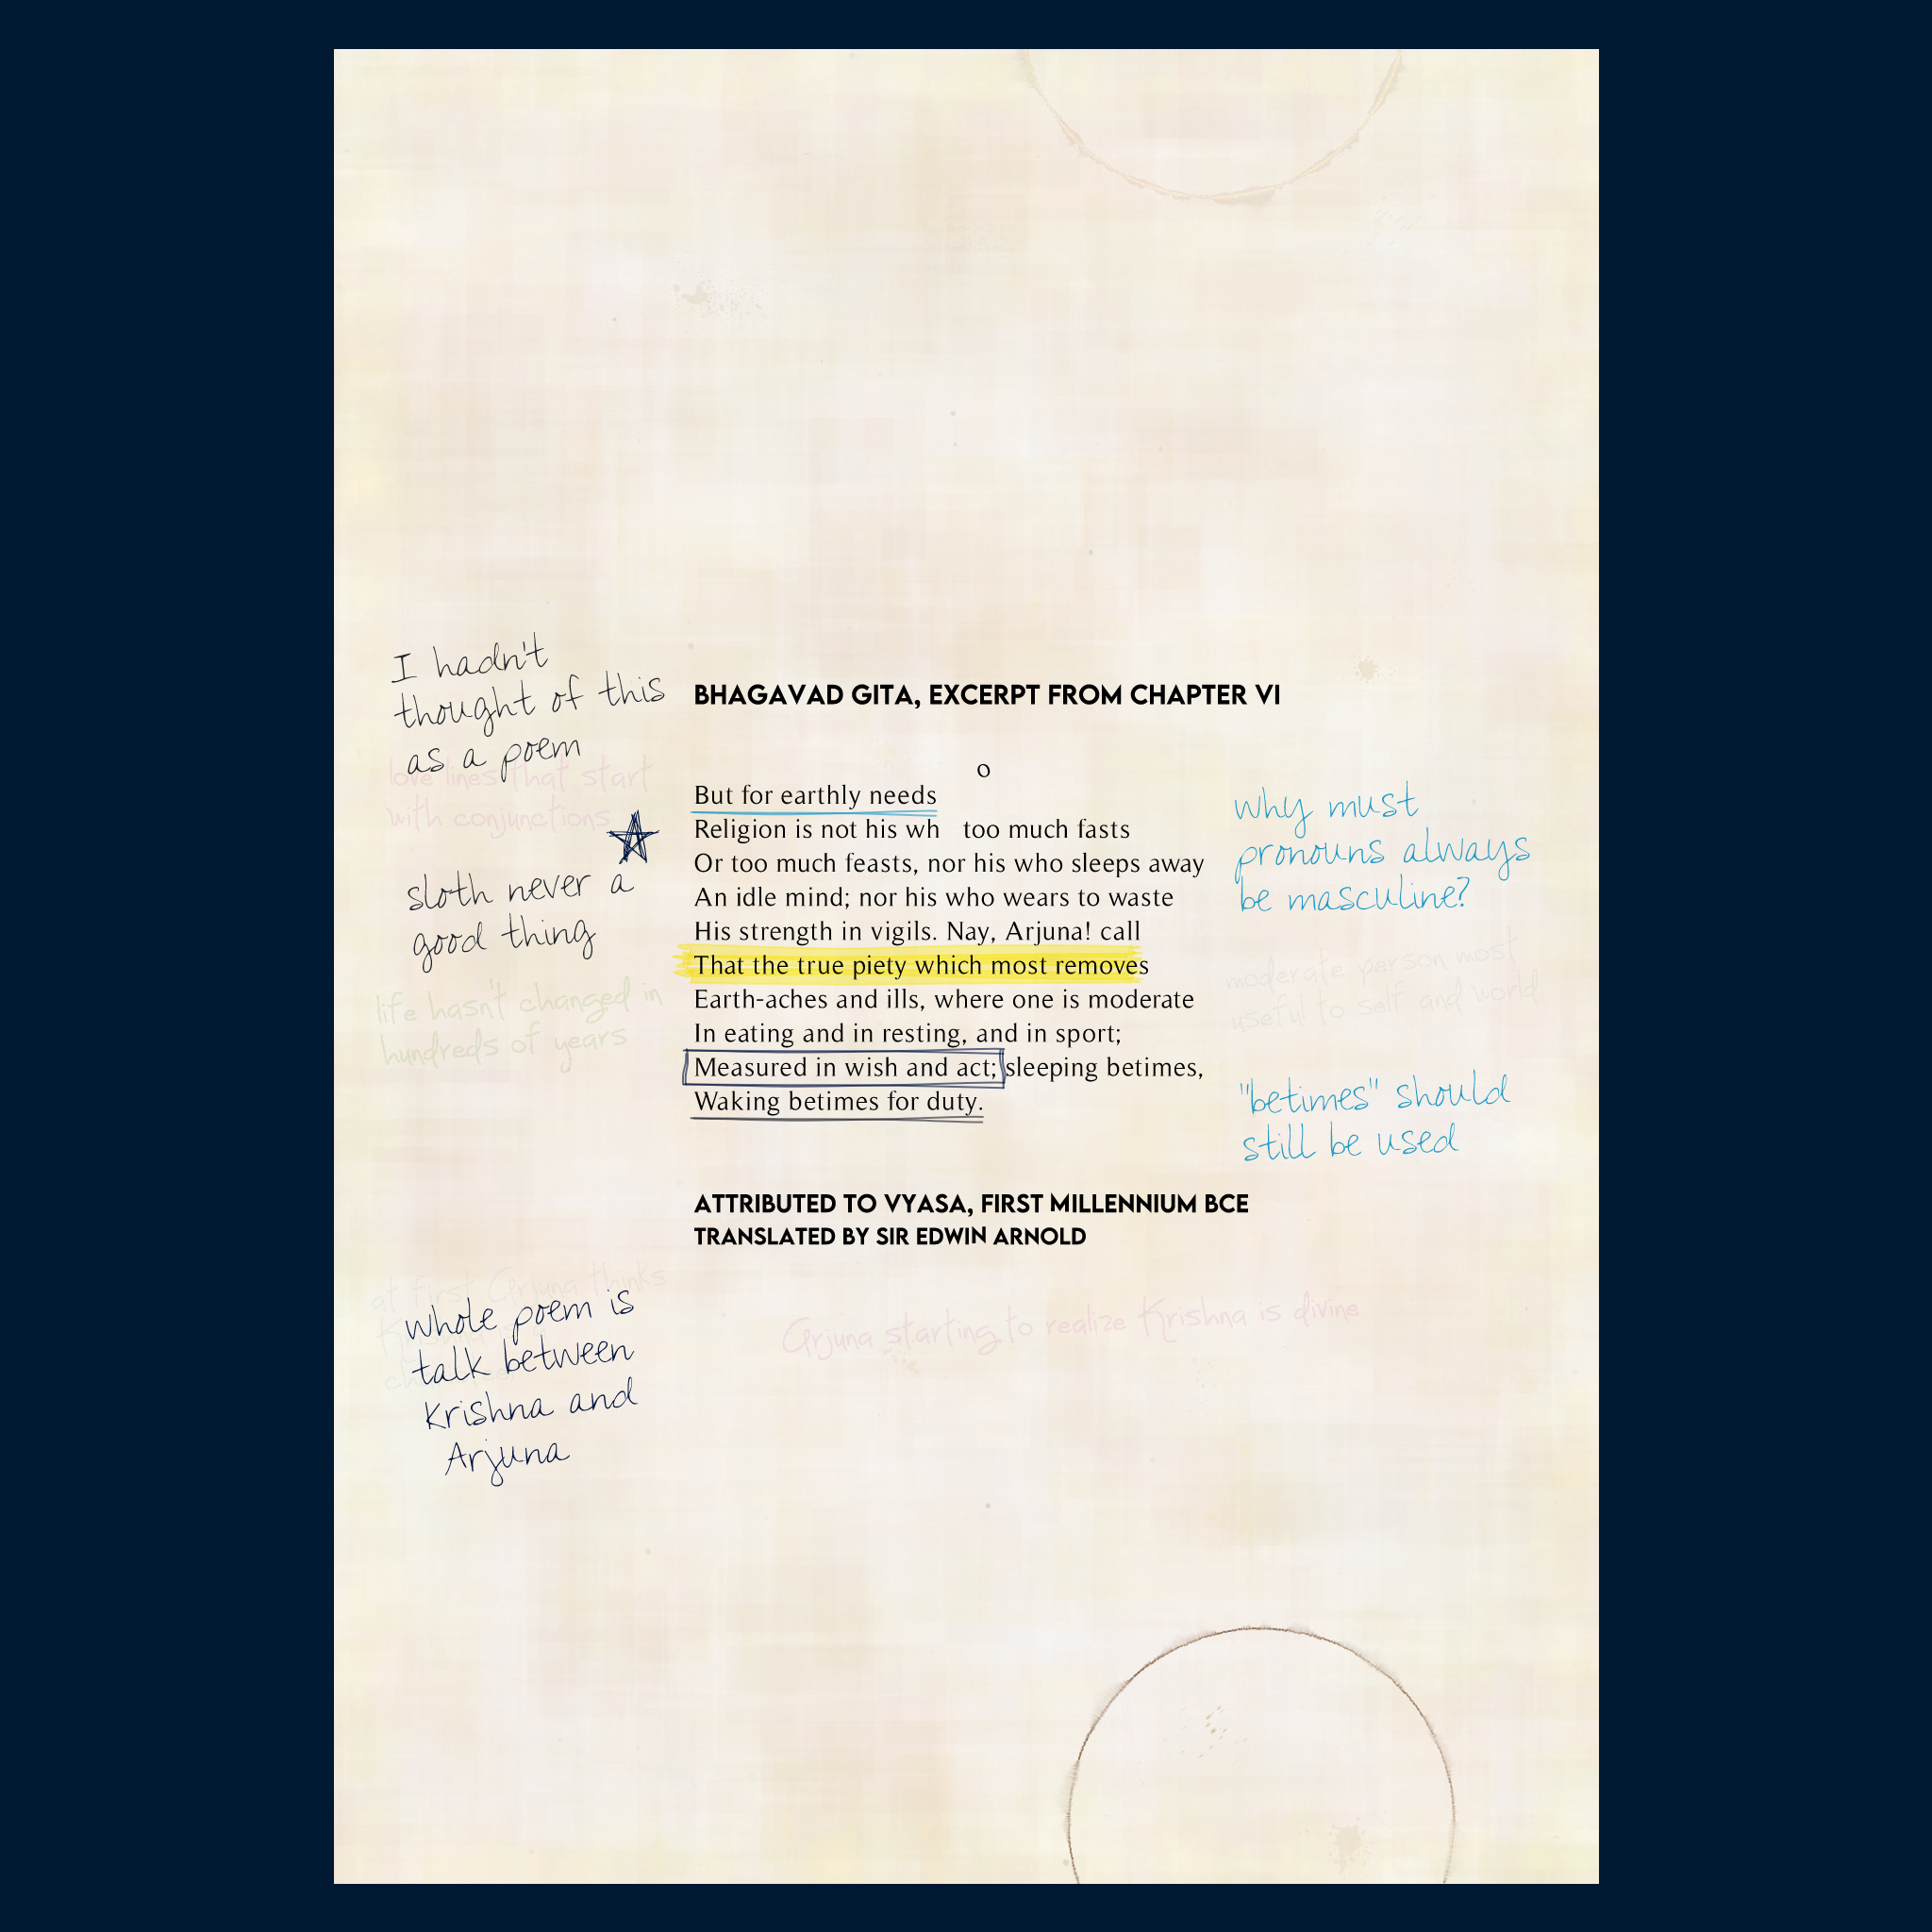 I hadn't
thought of this
as a poem
love lines that start
with conjunctions
sloth never a
good thing
life hasn't changed in
hundreds of years
at first Arjuna thinks
whole poem is
talk between
Krishna and
Arjuna
BHAGAVAD GITA, EXCERPT FROM CHAPTER VI
o
But for earthly needs
Religion is not his wh too much fasts
Or too much feasts, nor his who sleeps away
An idle mind; nor his who wears to waste
His strength in vigils. Nay, Arjuna! call
That the true piety which most removes
Earth-aches and ills, where one is moderate
In eating and in resting, and in sport;
Measured in wish and act; sleeping betimes,
Waking betimes for duty.
ATTRIBUTED TO VYASA, FIRST MILLENNIUM BCE
TRANSLATED BY SIR EDWIN ARNOLD
Arjuna starting to realize Krishna is divine
why must
pronouns always
be masculine?
moderate person most
useful to self and world
"betimes" should
still be used